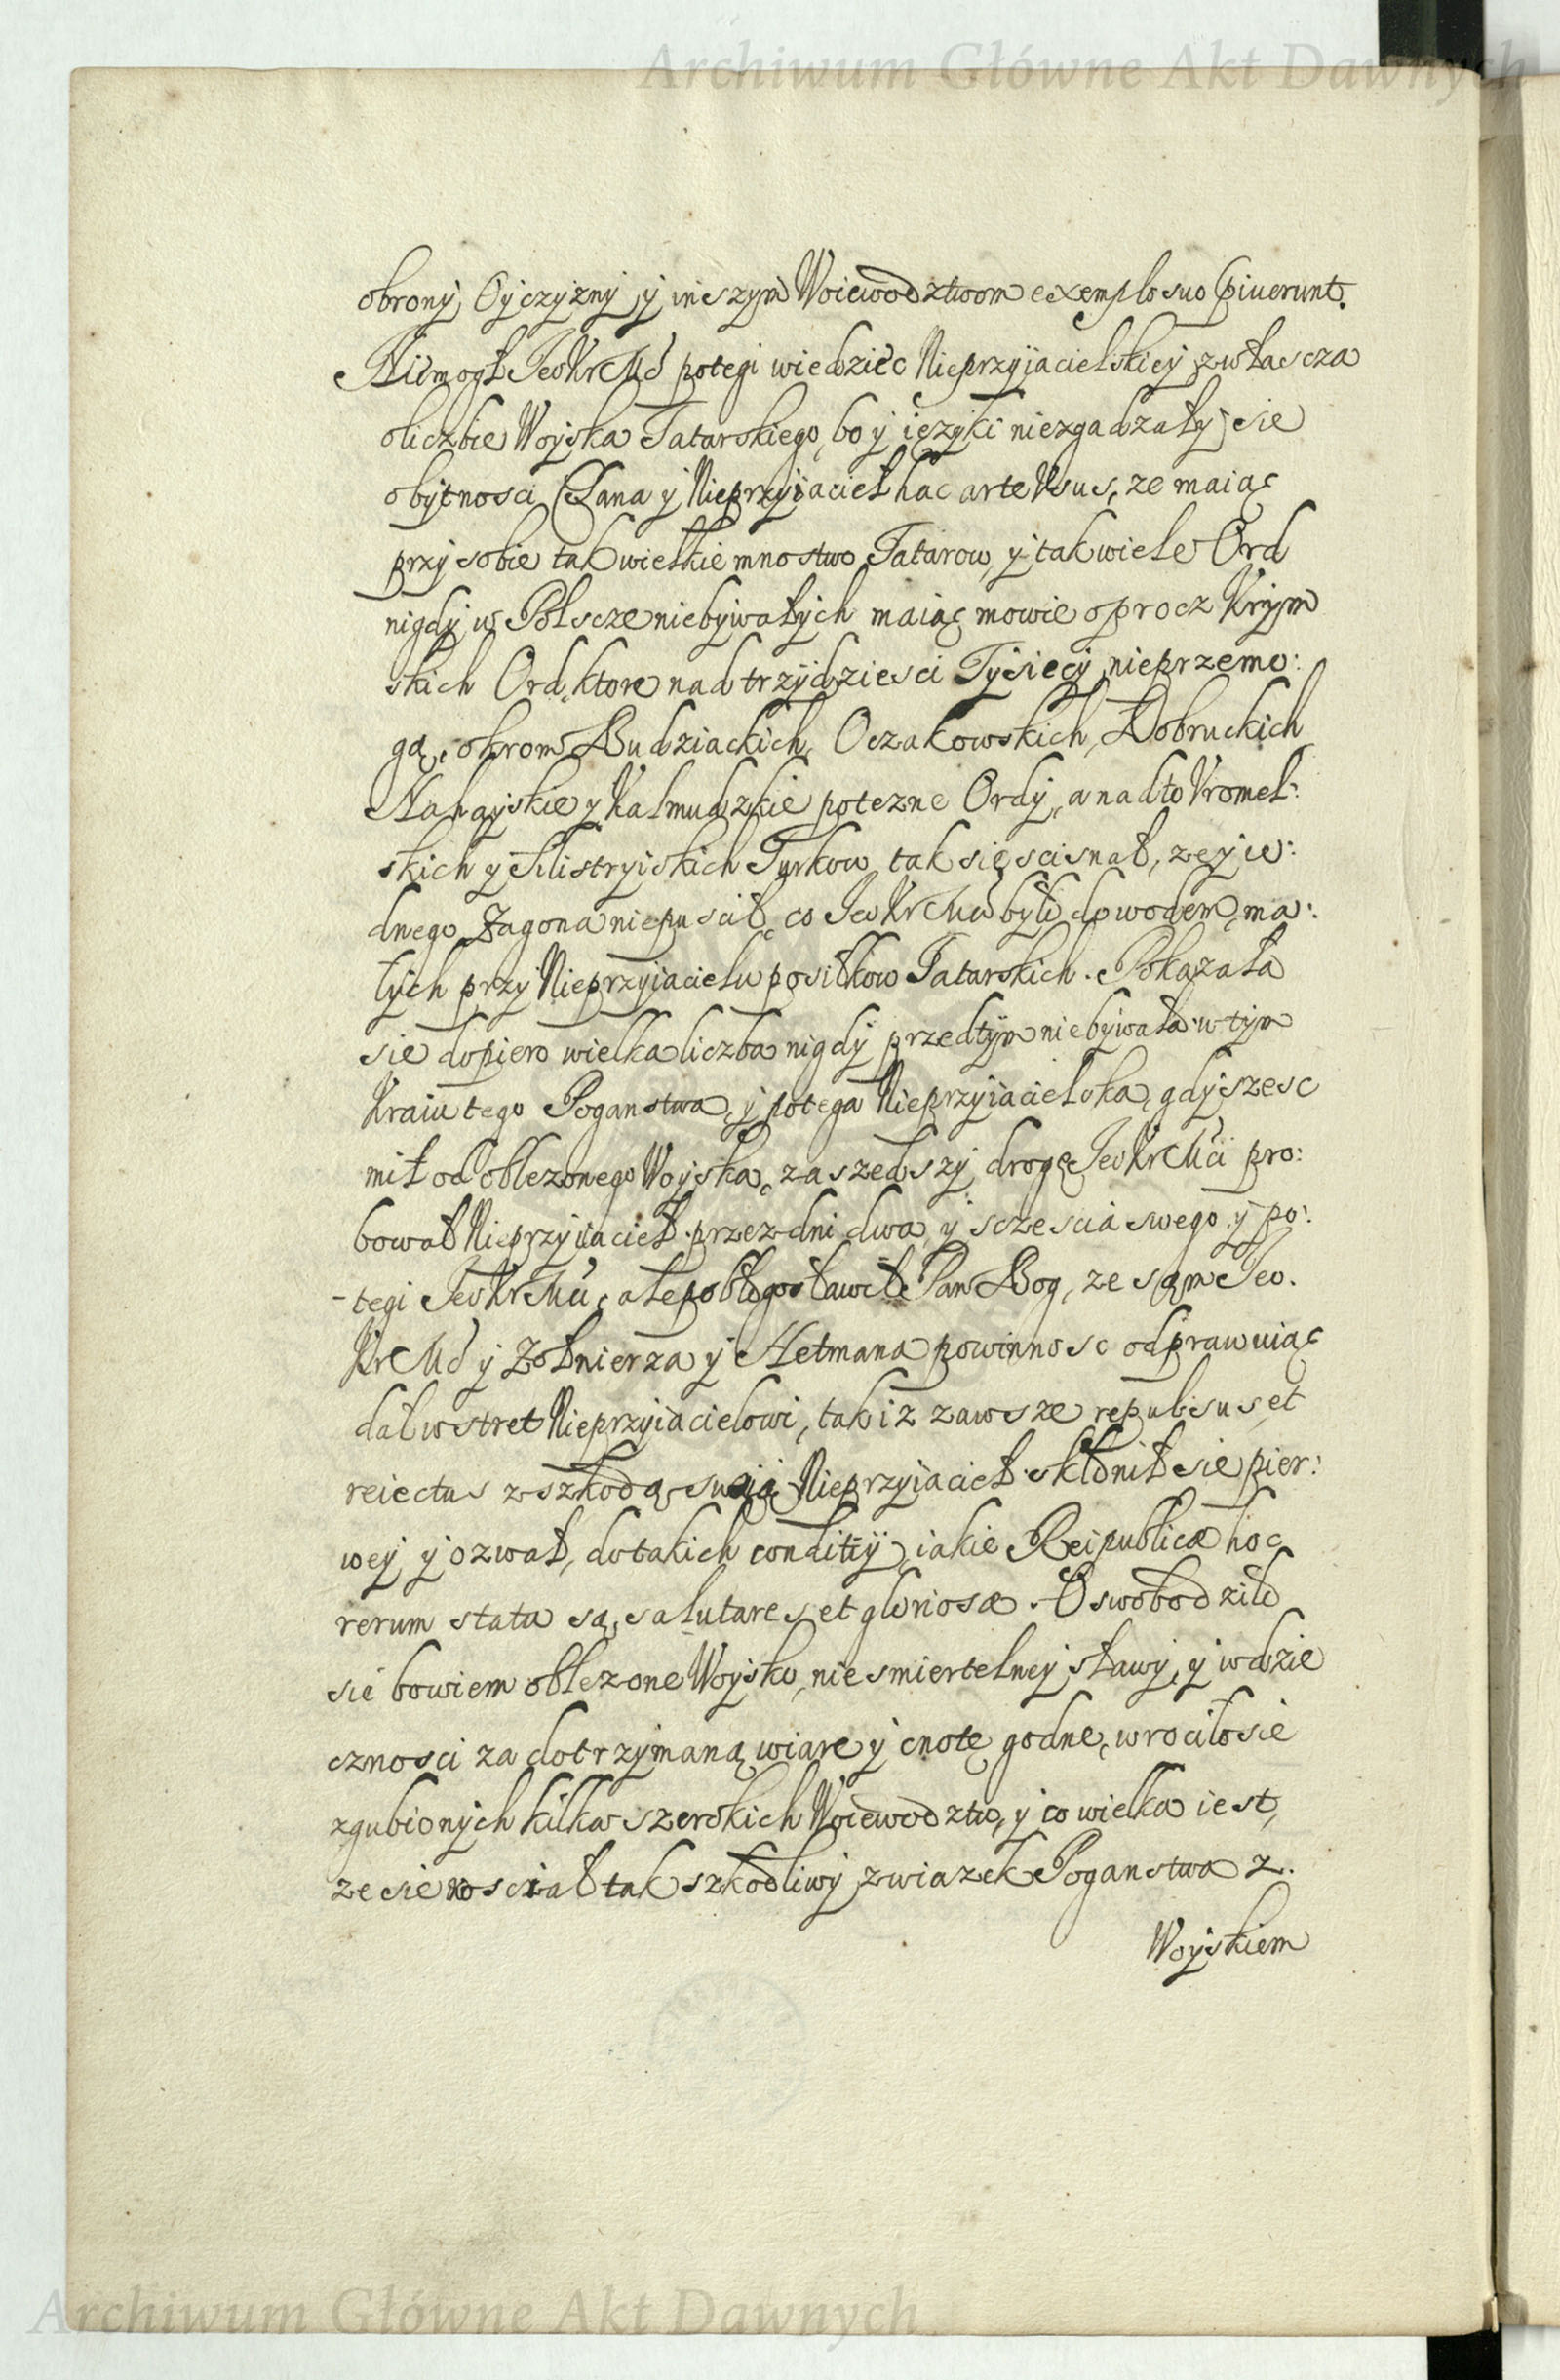 Archiwum Główne Akt Dawnych
obrony Oyczyzny y inszym Woiewodztwom exemplo suo
Niemogł Jeo Kr Mć potegi wiedziec Nieprzyiacielskiey zwłascza
oliczbie Woyska Tatarskiego, bo y ięzyki niezgadzały sie
obytnosci Chana y Nieprzyiaciel hac arte usus, ze maiąc
przy sobie tak wielkie mnostwo Tatarow, y tak wiele Ord
nigdy w Polscze niebywałych maiąc mowie oprocz Krym
skich Ord, ktore nad trzydziesci Tysiecy nieprzemo:
gą, okrom Budziackich, Oczakowskich, Dobruckich
Nahayskie y Kalmudzkie potezne Ordy, a nadto Vromel:
skich y Silistryiskich Turkow tak się scisnął, ze y ie:
dnego Zagona niepuscił, co Jeo Kr Mći było dowodem, ma:
łych przy Nieprzyiacielu posiłkow Tatarskich. Pokazała
sie dopiero wielka liczba nigdy przedtym niebywała w tym
Kraiu tego Poganstwa, y potega Nieprzyiacielska, gdy szesc
mil od oblezonego Woyska, zaszedszy drogę Jeo Kr Mći pro:
bował Nieprzyiaciel przez dni dwa y sczescia swego y po:
tegi Jeo Kr Mći, ale pobłogosławił Pan Bog, ze sam Jeo.
Kr Mć y Zołnierza y Hetmana powinnosc odprawuiąc
dał wstret Nieprzyiacielowi, tak iz zawsze repulsus et
reiectus z szkodą swoią Nieprzyiaciel skłonił sie pier:
wey y ozwał, do takich conditiy, iakie Reipublicæ hoc
rerum statu są, salutares et gloriosæ. Oswobodziło
sie bowiem oblezone Woysko, niesmiertelney sławy, y wdzie
cznosci za dotrzymaną wiare y cnotę godne, wrociło sie
zgubionych kilka szerokich Woiewodztw, y co wielka iest,
ze sie tak szkodliwy zwiazek Poganstwa z.
Woyskiem
Archiwum Główne Akt Dawnych